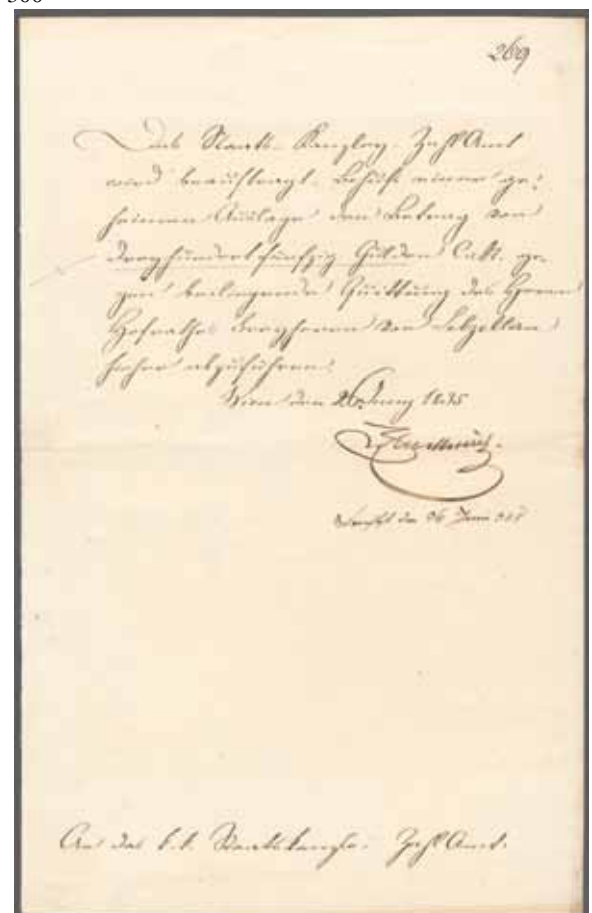 269
Das Staats-Kanzley-Zahl Amt
wird beauftragt, Behufs einer ge-
heimen Auslage den Betrag von
dreyhundert fünfzig Gulden CMt. ge-
gen beiliegende Quittung des Herrn
Hofrathes Freyherrn von Lebzeltern
hieher abzuführen.
Wien den 26 Juny 1835
Metternich.
den 26 Juni
An das k.k. Staatskanzley-Zahl Amt.